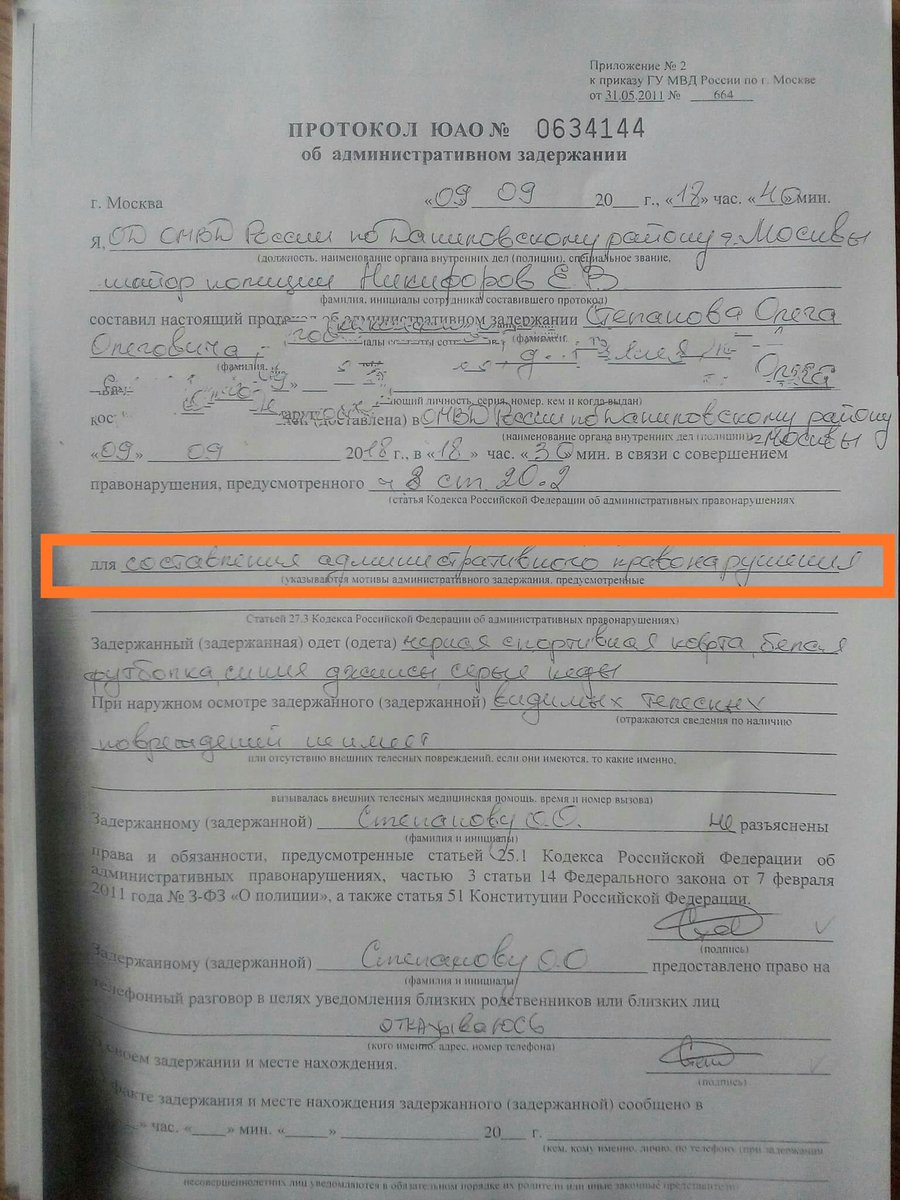 Приложение № 2
к приказу ГУ МВД России по г. Москве
от 31.05.2011 № 664
ПРОТОКОЛ ЮАО № 0634144
об административном задержании
г. Москва «09 09 20 г., «18» час. «46» мин.
Я, ОД ОМВД России по Даниловскому району г. Москвы
(должность, наименование органа внутренних дел (полиции), специальное звание,
майор полиции Никифоров Е В
фамилия, инициалы сотрудника, составившего протокол)
составил настоящий протокол об административном задержании Степанова Олега
Олеговича,
(фамилия,
ющий личность, серия, номер, кем и когда выдан)
(доставлена) в ОМВД России по Даниловскому району
(наименование органа внутренних дел (полиции) г. Москвы
«09» 09 2018 г., в «18» час. «30» мин. в связи с совершением
правонарушения, предусмотренного ч 8 ст 20.2
(статья Кодекса Российской Федерации об административных правонарушениях
для составления административного правонарушения
(указываются мотивы административного задержания, предусмотренные
Статьей 27.3 Кодекса Российской Федерации об административных правонарушениях)
Задержанный (задержанная) одет (одета) черная спортивная кофта, белая
футболка, синия джинсы, серые кеды
При наружном осмотре задержанного (задержанной) видимых телесных
(отражаются сведения по наличию
повреждений не имеет
или отсутствию внешних телесных повреждений, если они имеются, то какие именно,
вызывалась внешних телесных медицинская помощь, время и номер вызова)
Задержанному (задержанной) Степанову О.О. не разъяснены
(фамилия и инициалы)
права и обязанности, предусмотренные статьей 25.1 Кодекса Российской Федерации об
административных правонарушениях, частью 3 статьи 14 Федерального закона от 7 февраля
2011 года № 3-ФЗ «О полиции», а также статья 51 Конституции Российской Федерации.
(подпись)
Задержанному (задержанной) Степанову О.О предоставлено право на
телефонный разговор в целях уведомления близких родственников или близких лиц
отказываюсь
(кого именно, адрес, номер телефона)
о своем задержании и месте нахождения.
(подпись)
факте задержания и месте нахождения задержанного (задержанной) сообщено в
» час. « » мин. « » 20 г.
(кем, кому именно, лично, по телефону (при задержании
несовершеннолетних лиц уведомляются в обязательном порядке их родители или иные законные представители)